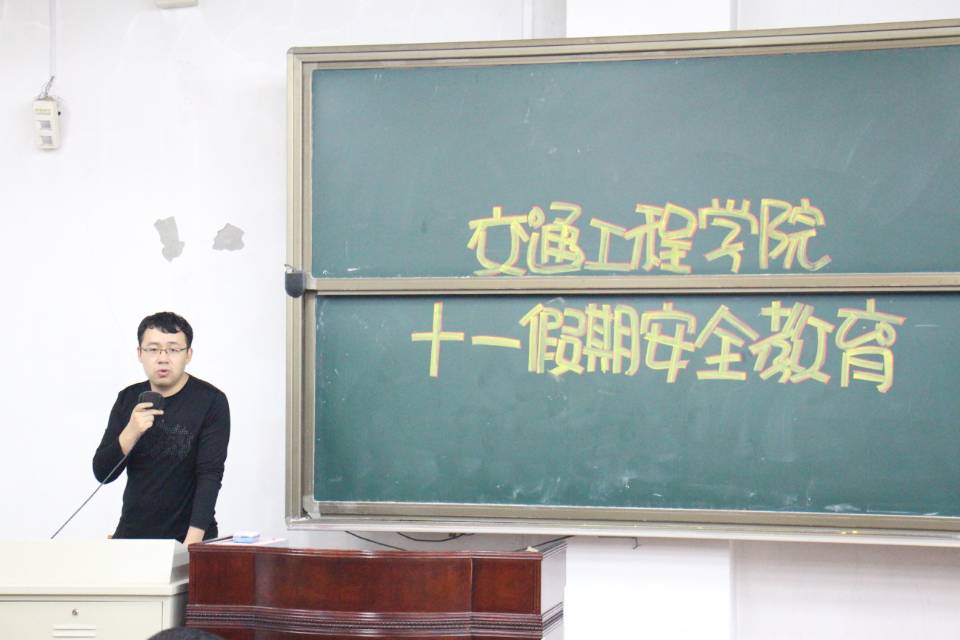 交通工程学院
十一假期安全教育